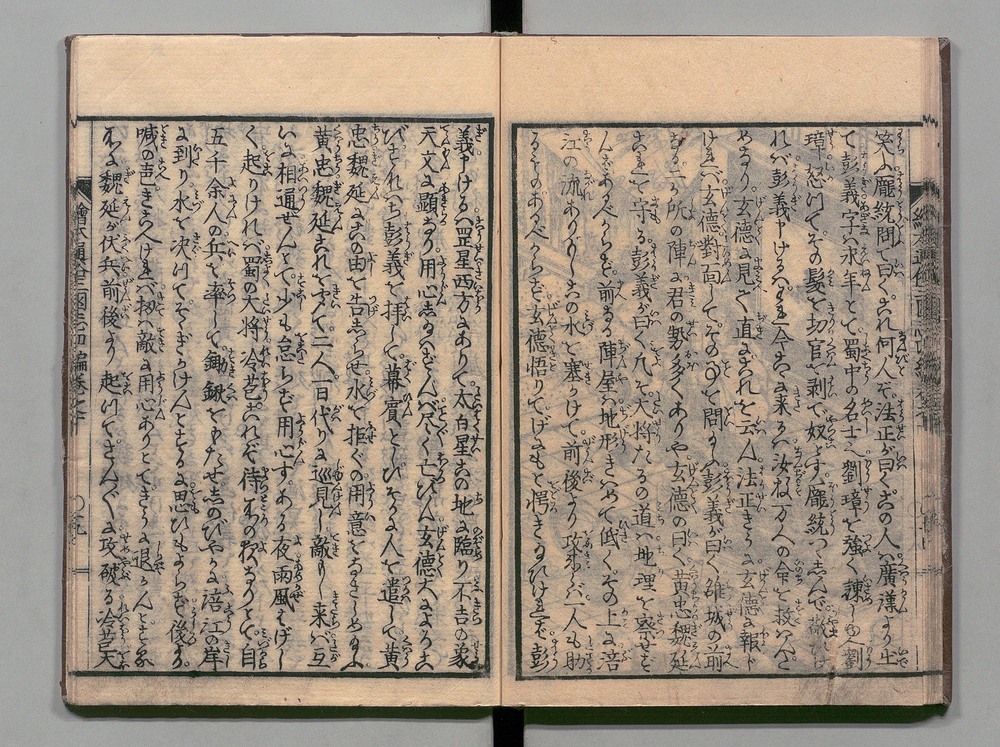 笑ふ龐統問て曰くこれ何人ぞ法正が曰くこの人ハ廣漢より出
て彭義字ハ永年とて蜀中の名士也劉璋を強く諫しゆゑ劉
璋怒つてその髪を切官を剥て奴とす龐統つゝしんで敬ひけ
れバ彭義申けるハ我今こゝに来るハ汝ね万人の命を救ハんた
めなり玄徳に見えて直にこれを云ん法正きうに玄徳に報じ
けれバ玄徳對面してそのゆゑを問ふ彭義が曰く雒城の前
なる二か所の陣に君の勢多くありや玄徳の曰く黄忠魏延
これを守る彭義が曰く凡そ大将たるの道ハ地理を察せず
んバあるべからず前なる陣屋ハ地形きハめて低くその上に涪
江の流ありもしこの水を塞きかけて前後より攻来らバ一人も助
るものあるべからず玄徳悟りてげにもと愕きたまひけれバ彭
義申けるハ罡星西方にありて太白星この地に臨り不吉の象
天文に顕たり用心したまハずんバ尽く亡びん玄徳大によろこ
びそれより彭義を拝して幕賓とし ひそかに人を遣して黄
忠魏延にこの由を告しらせ水を拒ぐの用意をなさしめたまふ
黄忠魏延これをきゝて二人一日代りに巡見し敵もし来バ互
いに相通ぜんとて少も怠らず用心すある夜雨風はげし
く起りけれバ蜀の大将冷苞これぞ待ところの夜なりとて自
五千余人の兵を率し鋤鍬をもたせしのびやかに涪江の岸
に到り水を决つてそゝぎかけんとするに思ひもよらず後に
喊の声きこえけれバ扨ハ敵に用心ありとてきうに退かんとする
ところに魏延が伏兵前後より起つてさんざんに攻破る冷苞大
繪本通俗三國志四編巻之十